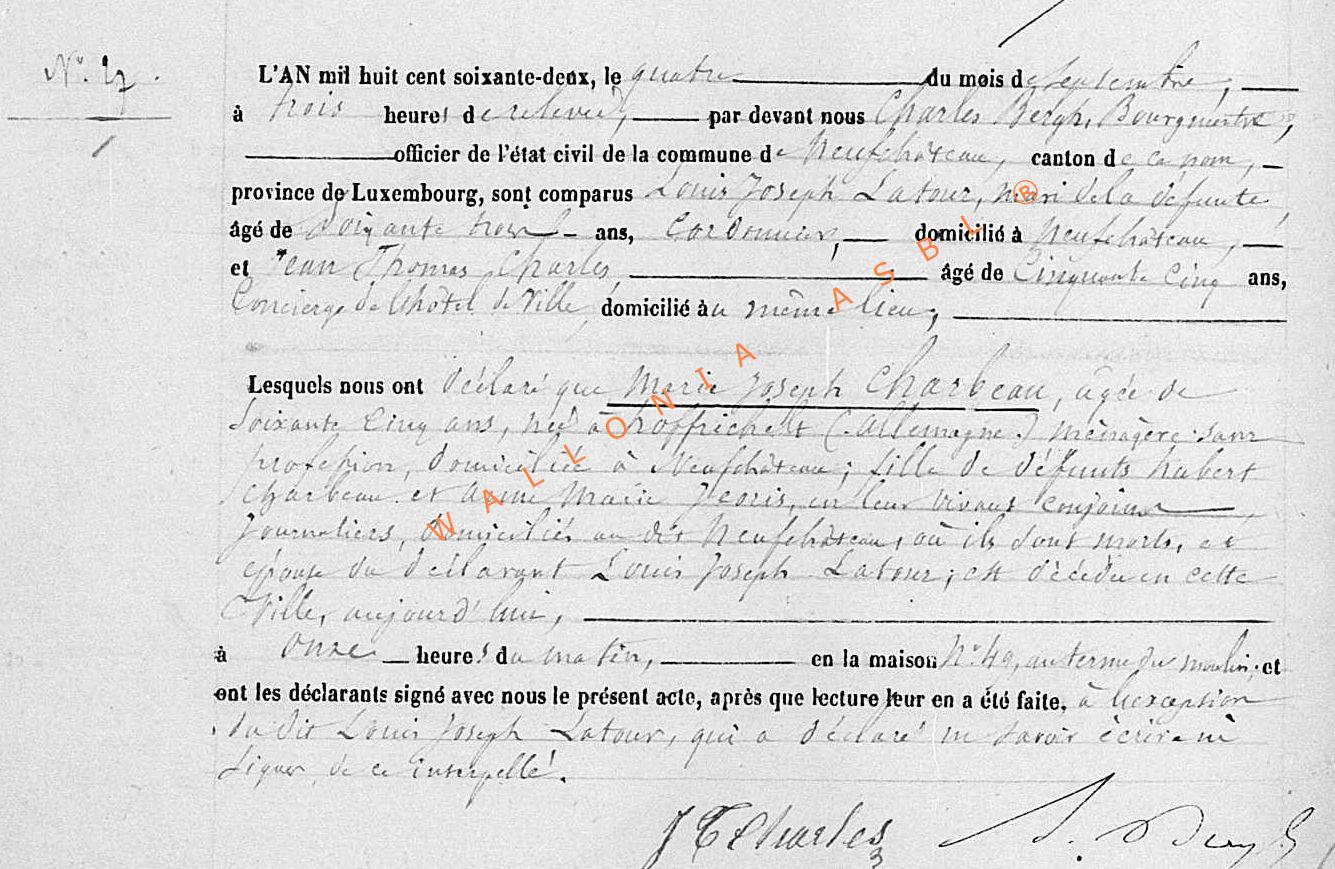 N° 27.
L'AN mil huit cent soixante-deux, le quatre du mois de Septembre,
à trois heures de relevée, par devant nous Charles Bergh, Bourgmestre,
officier de l'état civil de la commune de Neufchâteau, canton de ce nom,
province de Luxembourg, sont comparus Louis Joseph Latour, mari de la défunte,
âgé de soixante trois ans, Cordonnier, domicilié à Neufchâteau,
et Jean Thomas Charles, âgé de Cinquante cinq ans,
Concierge de l'hôtel de Ville, domicilié au même lieu,
Lesquels nous ont déclaré que Marie Joseph Charbeau, âgée de
soixante cinq ans, née à (Allemagne) ménagère sans
profession, domiciliée à Neufchâteau; fille de défunts hubert
Charbeau et Anne Marie Jeoris, en leur vivant conjoints
journaliers, domiciliés au dit Neufchâteau, où ils sont morts, et
épouse du déclarant Louis Joseph Latour; est décédée en cette
Ville, aujourd'hui,
à onze heures du matin, en la maison N° 49, au terme du moulin; et
ont les déclarants signé avec nous le présent acte, après que lecture leur en a été faite, à l'exception
du dit Louis Joseph Latour, qui a déclaré ne savoir écrire ni
signer, de ce interpellé.
J T Charles
WALLONIA ASBL ®